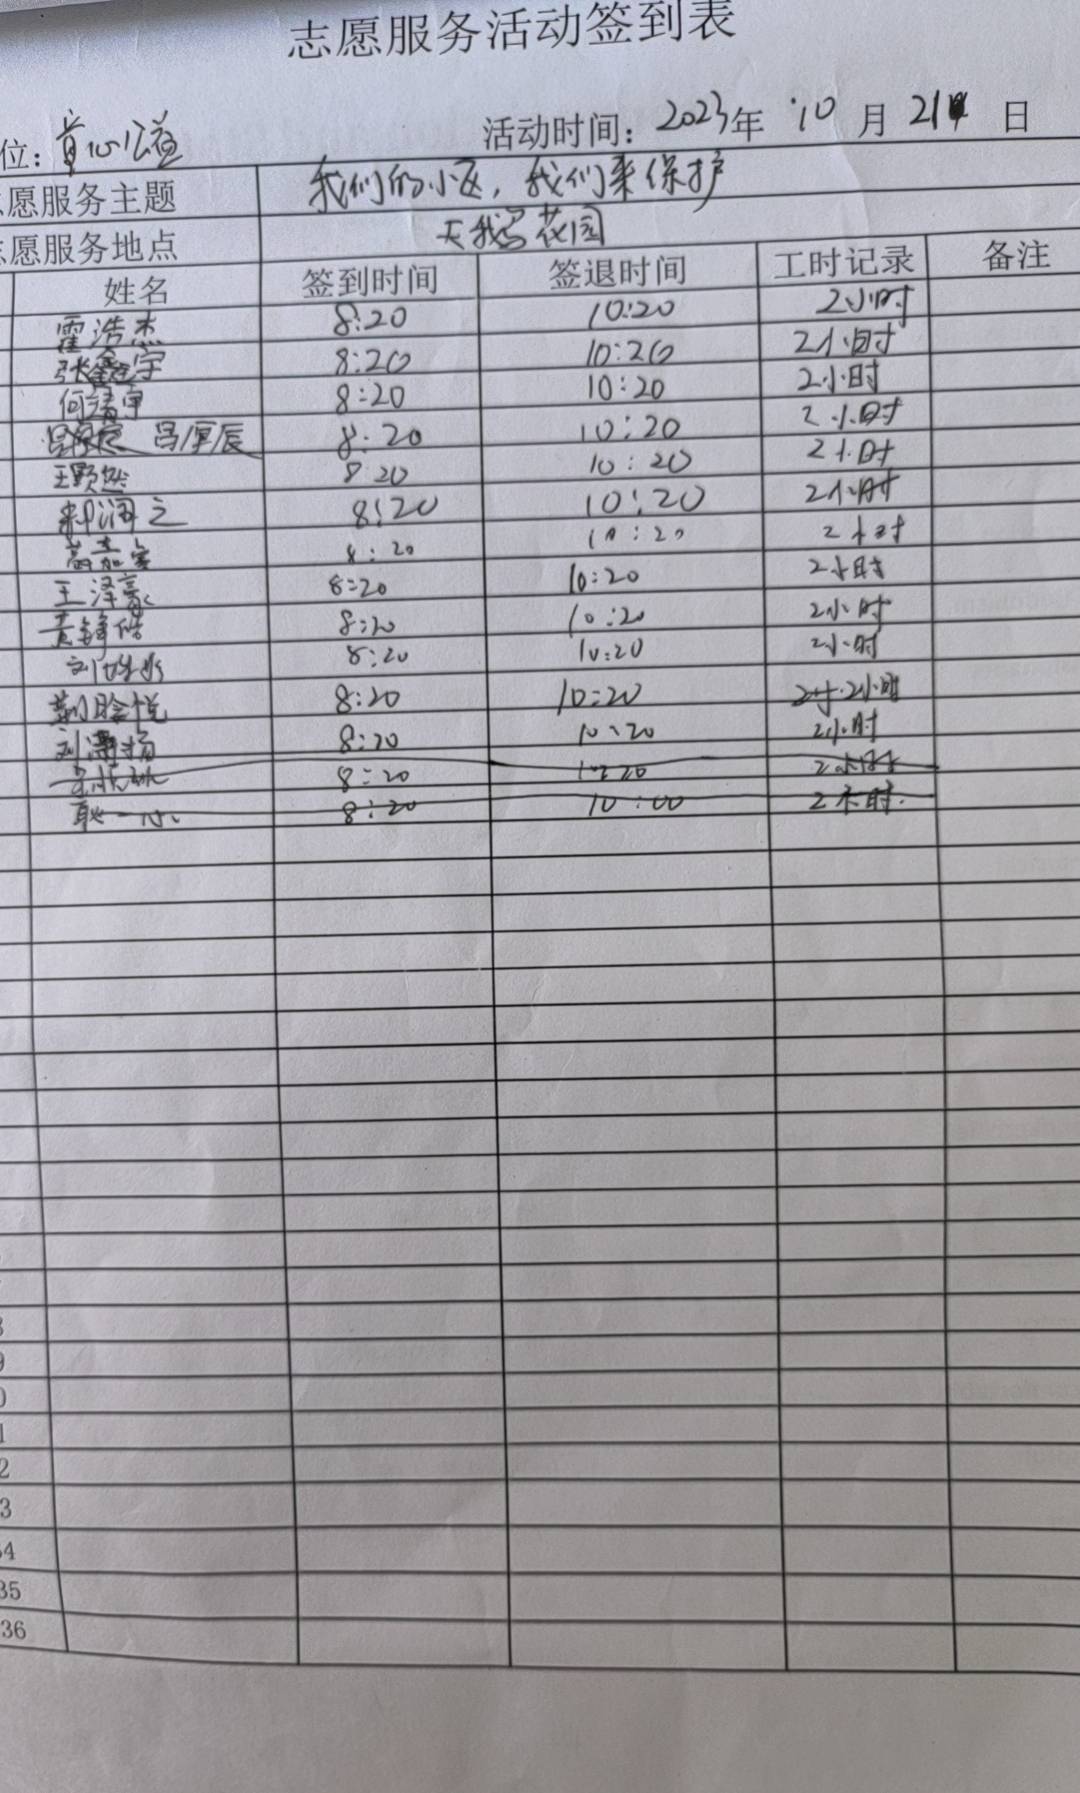 志愿服务活动签到表
位: 心公益 活动时间: 2023年 10 月 21 日
愿服务主题 我们的小区，我们来保护
愿服务地点 天鹅 花园
姓名 签到时间 签退时间 工时记录 备注
霍浩杰 8:20 10:20 2小时
张鑫宇 8:20 10:20 2小时
何靖宇 8:20 10:20 2小时
吕厚辰 8:20 10:20 2小时
王颢然 8:20 10:20 2小时
润之 8:20 10:20 2小时
高嘉 8:20 10:20 2小时
王泽豪 8:20 10:20 2小时
黄铮皓 8:20 10:20 2小时
刘 8:20 10:20 2小时
荆晗悦 8:20 10:20 2小时
刘潇扬 8:20 10:20 2小时
8:20 10:20 2小时
耿一 8:20 10:00 2小时
8
9
0
1
2
3
34
35
36